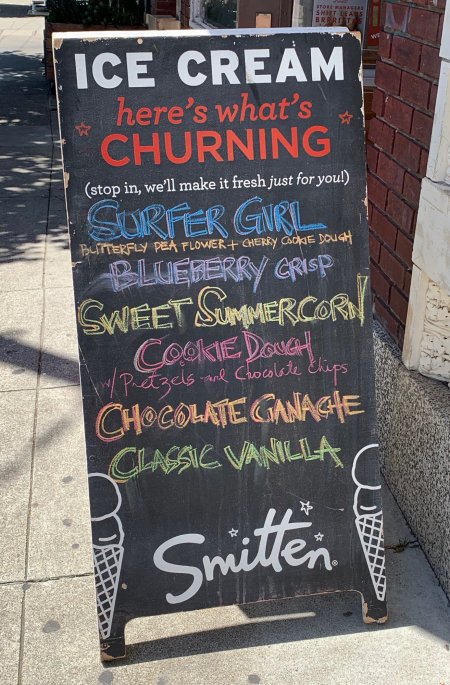 STORE MANAGERS
SHIFT LEADS
ICE CREAM
here's what's
CHURNING
(stop in, we'll make it fresh just for you!)
SURFER GIRL
BUTTERFLY PEA FLOWER + CHERRY COOKIE DOUGH
BLUEBERRY CRISP
SWEET SUMMER CORN
COOKIE DOUGH
w/ Pretzels and Chocolate Chips
CHOCOLATE GANACHE
CLASSIC VANILLA
Smitten®